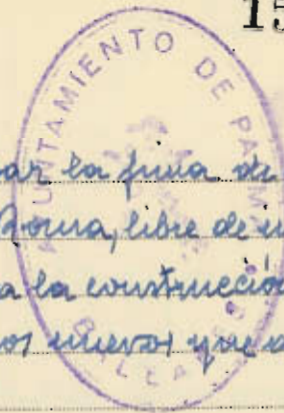 15
AYUNTAMIENTO DE PALMA
ar la finca de
Roma, libre de
a la construcción
os nuevos que